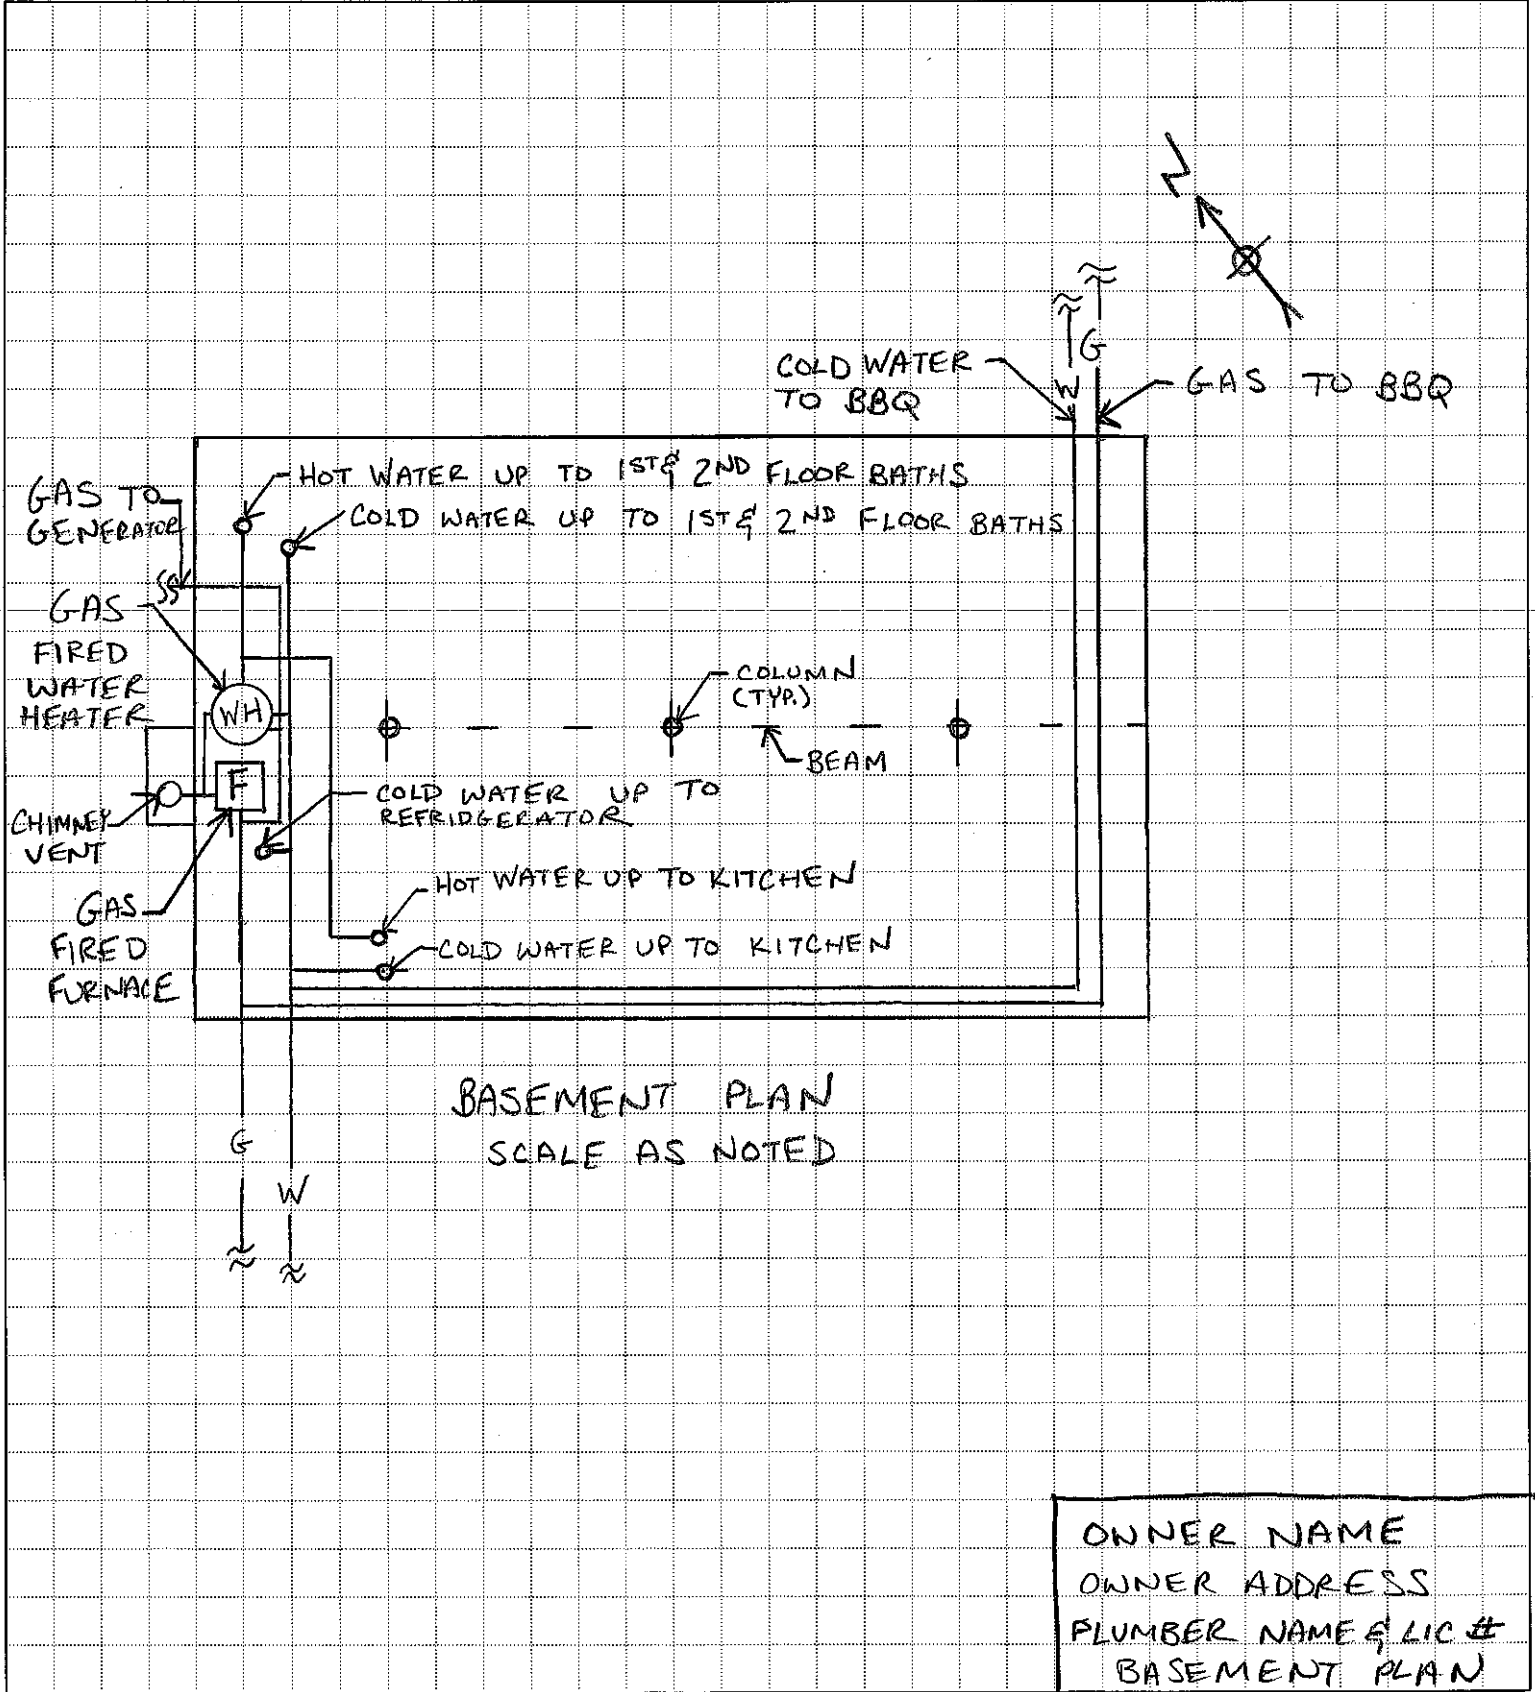 COLD WATER
TO BBQ
W
G
GAS TO BBQ
HOT WATER UP TO 1ST & 2ND FLOOR BATHS
COLD WATER UP TO 1ST & 2ND FLOOR BATHS
GAS TO
GENERATOR
GAS
FIRED
WATER
HEATER
WH
COLUMN
(TYP.)
BEAM
F
COLD WATER UP TO
REFRIDGERATOR
CHIMNEY
VENT
HOT WATER UP TO KITCHEN
COLD WATER UP TO KITCHEN
GAS
FIRED
FURNACE
BASEMENT PLAN
SCALE AS NOTED
G
W
OWNER NAME
OWNER ADDRESS
PLUMBER NAME & LIC #
BASEMENT PLAN
N